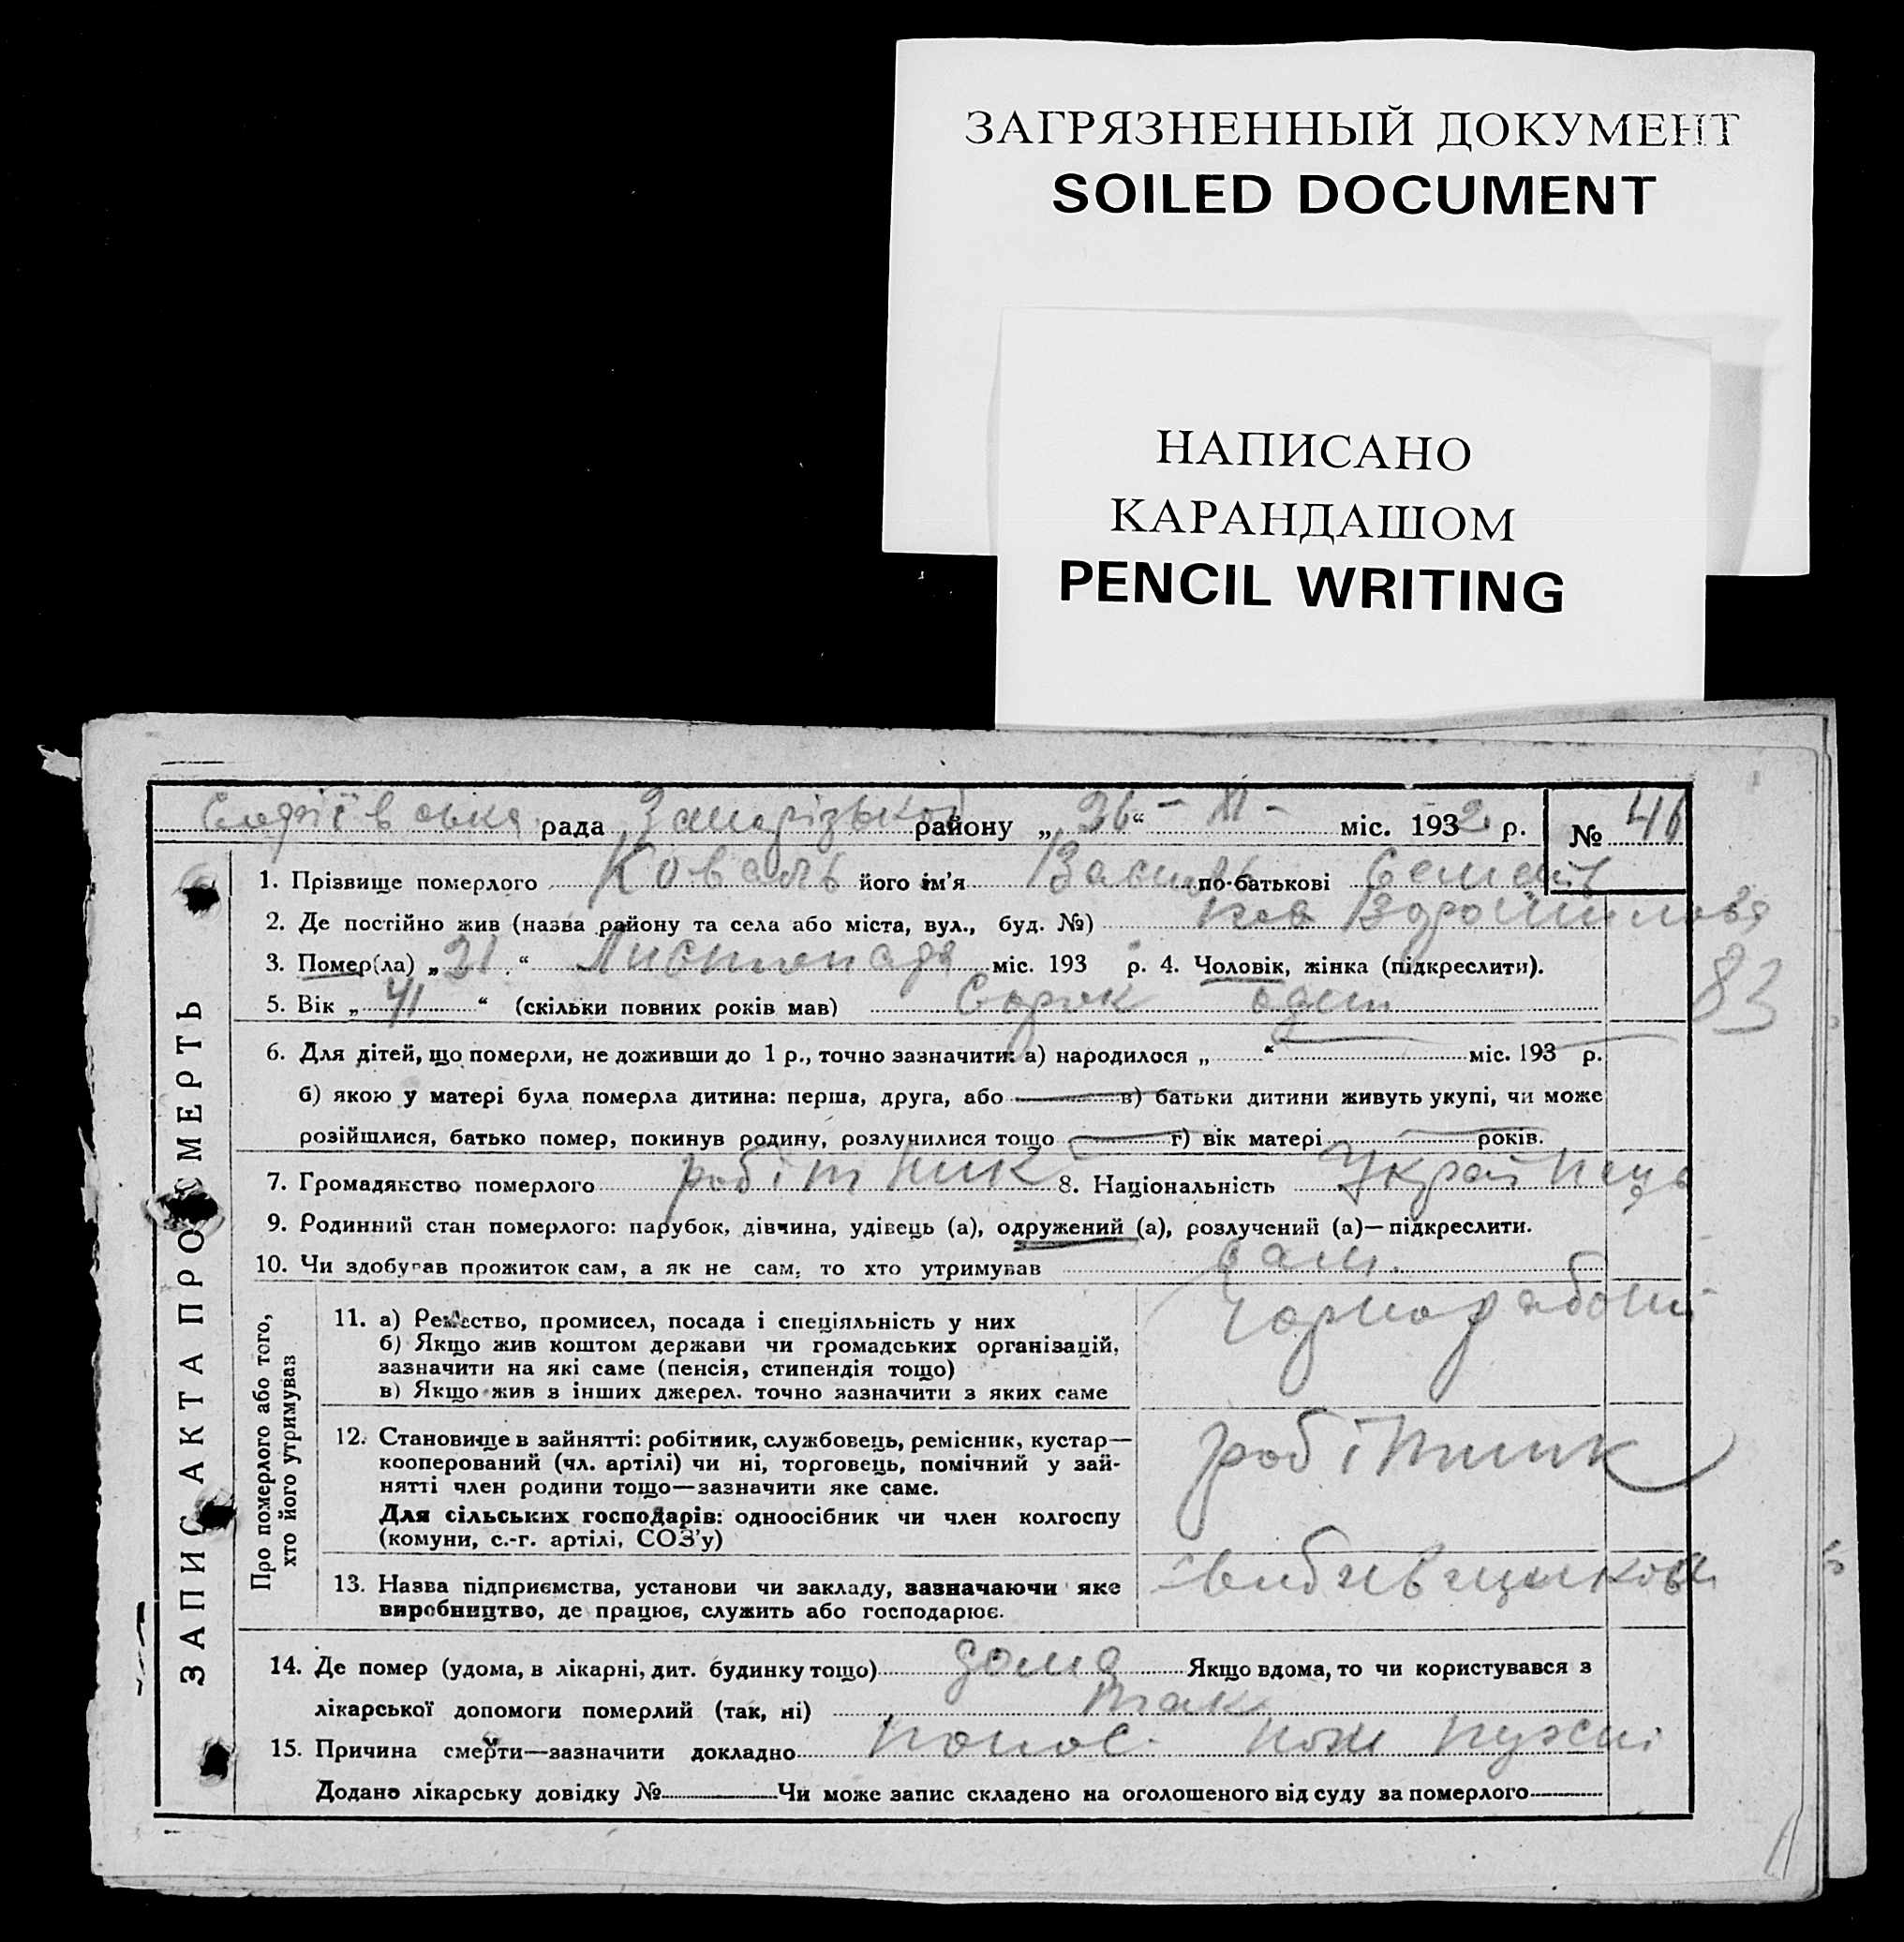 ЗАГРЯЗНЕННЫЙ ДОКУМЕНТ
SOILED DOCUMENT
НАПИСАНО
КАРАНДАШОМ
PENCIL WRITING
рада Запорізької району „26“ - XI - міс. 1932 р. № 46
1. Прізвище померлого Коваль його ім'я Василь по-батькові Семенів
2. Де постійно жив (назва району та села або міста, вул., буд. №) Ворошилова
3. Помер(ла) „21“ Листопада міс. 193 р. 4. Чоловік, жінка (підкреслити).
83
5. Вік „41“ (скільки повних років мав) Сорок один
6. Для дітей, що померли, не доживши до 1 р., точно зазначити: а) народилося „ “ міс. 193 р.
б) якою у матері була померла дитина: перша, друга, або в) батьки дитини живуть укупі, чи може
розійшлися, батько помер, покинув родину, розлучилися тощо г) вік матері років.
7. Громадянство померлого робітник 8. Національність Українець
9. Родинний стан померлого: парубок, дівчина, удівець (а), одружений (а), розлучений (а)—підкреслити.
10. Чи здобував прожиток сам, а як не сам, то хто утримував сам.
ЗАПИС АКТА ПРО СМЕРТЬ
Про померлого або того,
хто його утримував
11. а) Ремество, промисел, посада і спеціяльність у них
б) Якщо жив коштом держави чи громадських організацій,
зазначити на які саме (пенсія, стипендія тощо)
в) Якщо жив з інших джерел, точно зазначити з яких саме
Чорноробочий
12. Становище в зайнятті: робітник, службовець, ремісник, кустар—
кооперований (чл. артілі) чи ні, торговець, помічний у зай-
нятті член родини тощо—зазначити яке саме.
Для сільських господарів: одноосібник чи член колгоспу
(комуни, с.-г. артілі, СОЗ'у)
робітник
13. Назва підприємства, установи чи закладу, зазначаючи яке
виробництво, де працює, служить або господарює.
14. Де помер (удома, в лікарні, дит. будинку тощо) дома Якщо вдома, то чи користувався з
лікарської допомоги померлий (так, ні) так
15. Причина смерти—зазначити докладно понос
Додано лікарську довідку № Чи може запис складено на оголошеного від суду за померлого